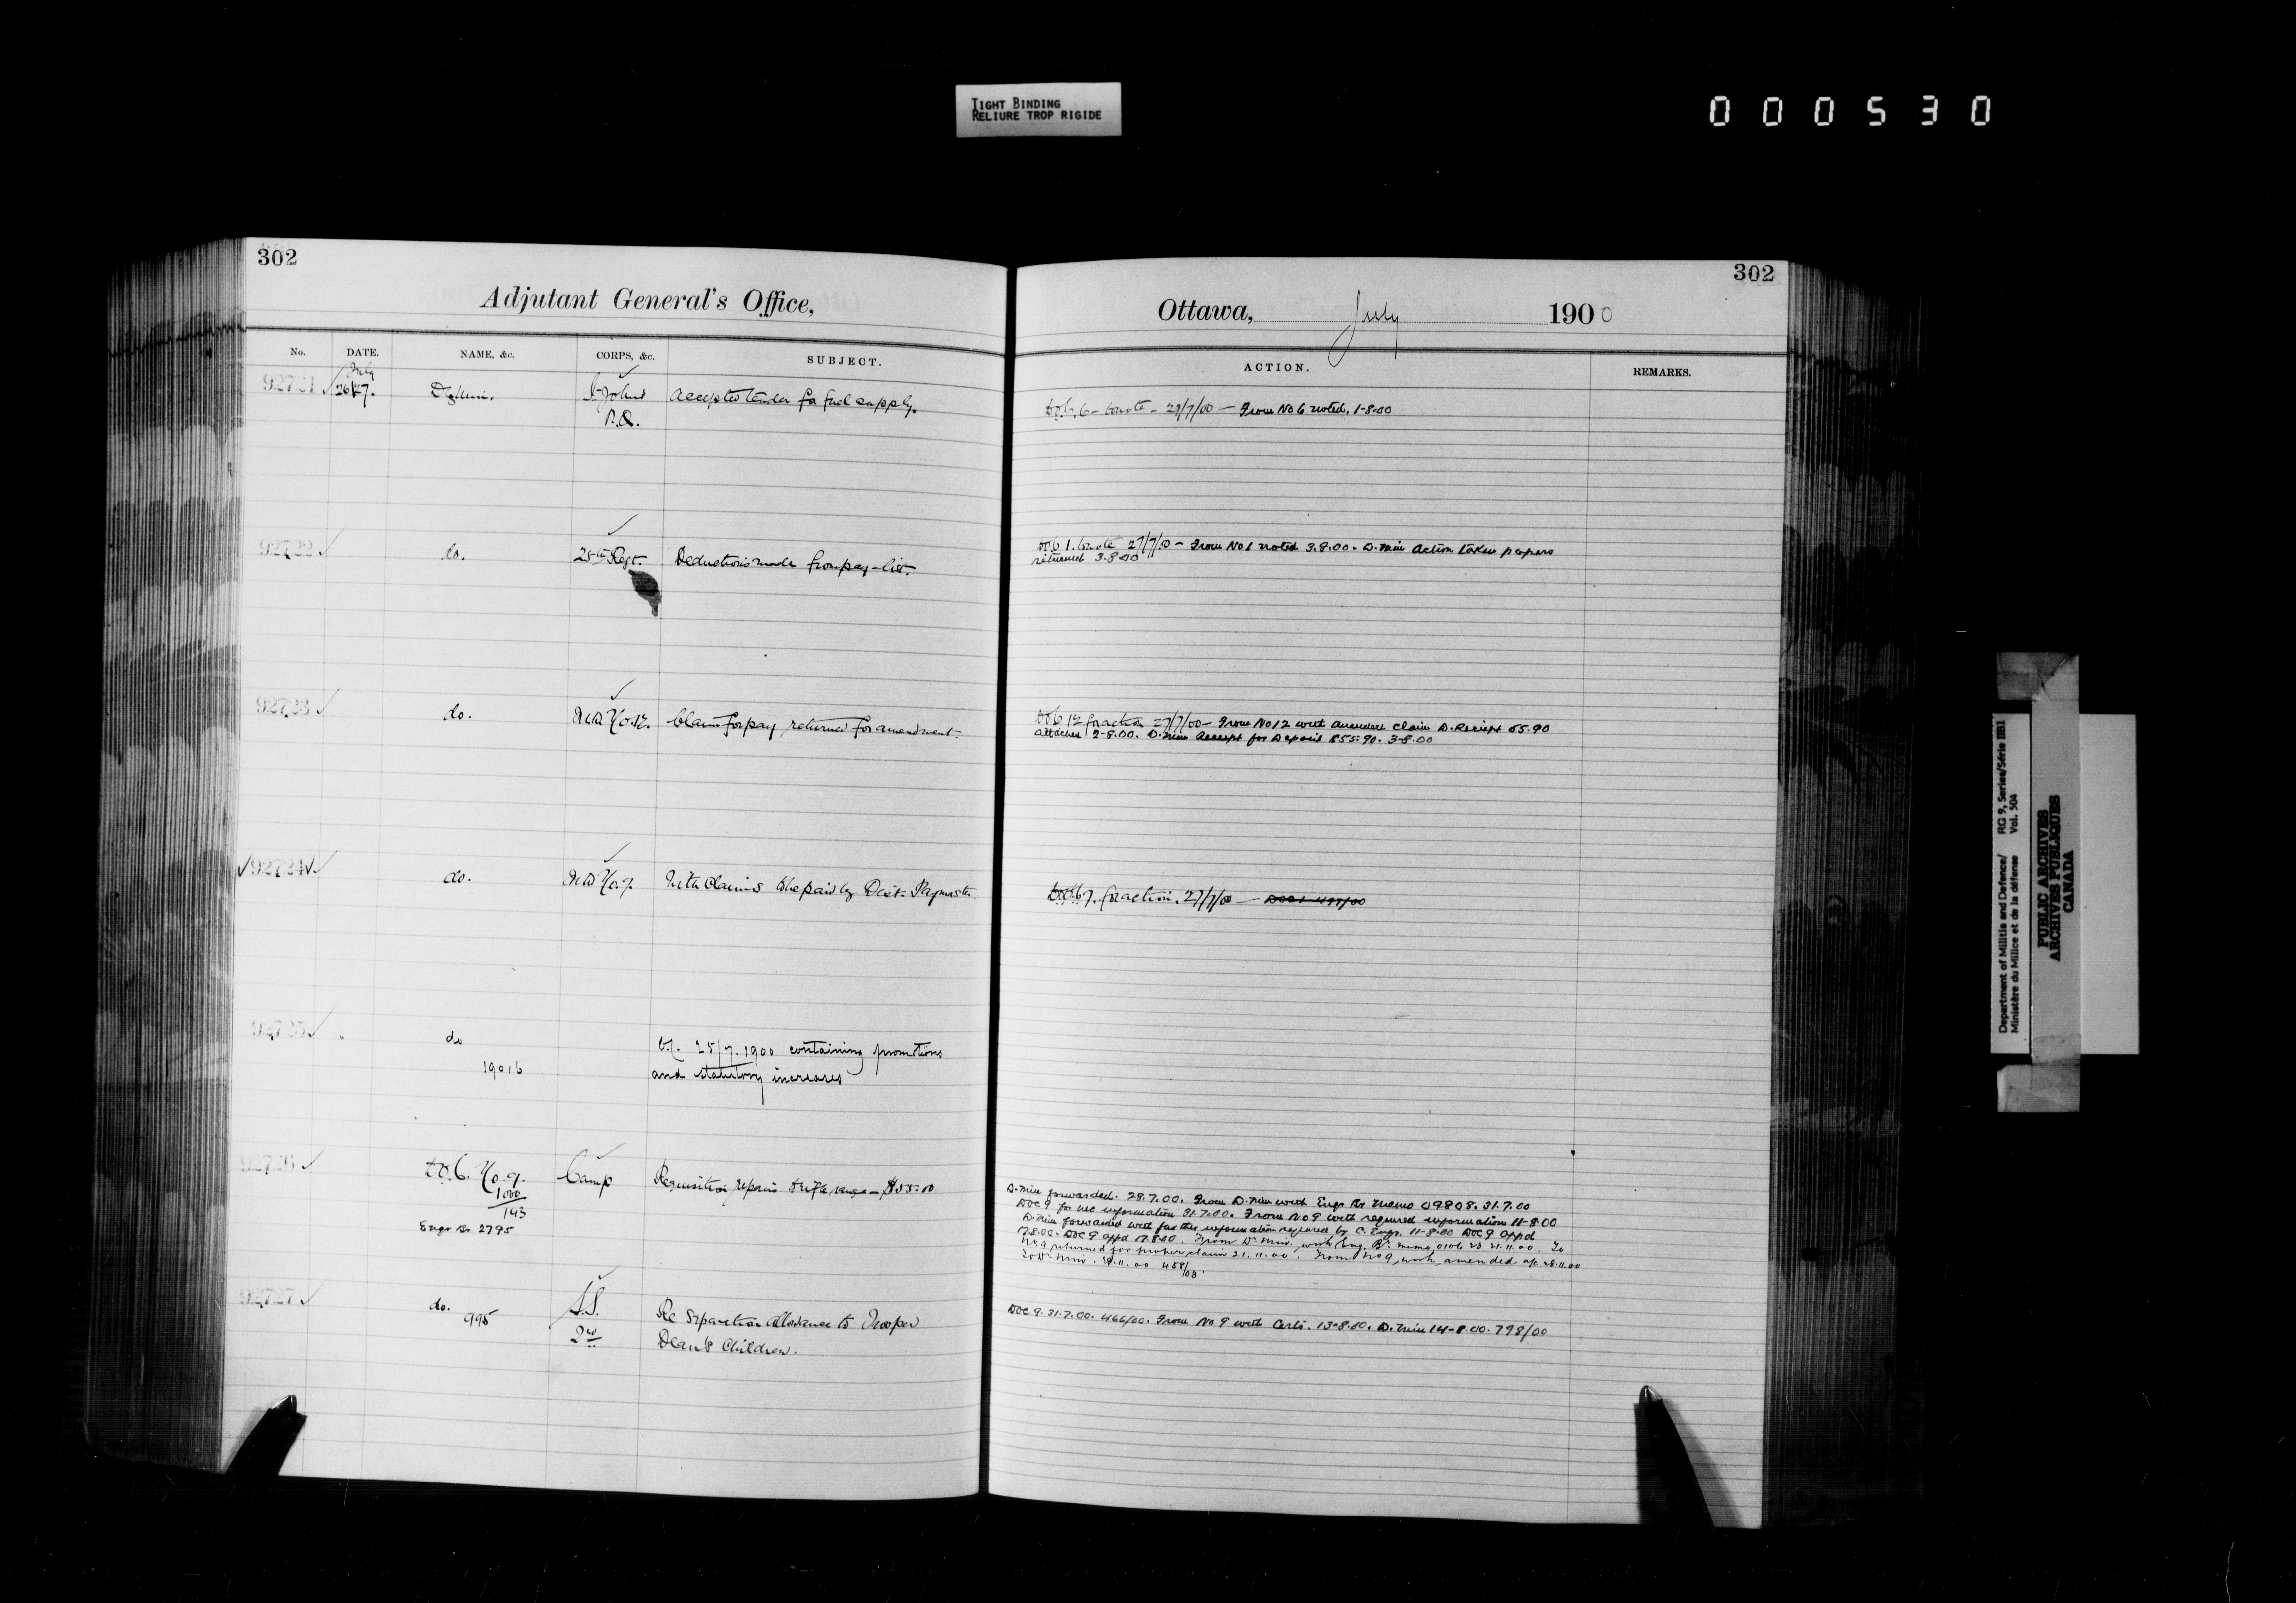 TIGHT BINDING
RELIURE TROP RIGIDE
000530
302
Adjutant General's Office,
No.
DATE.
NAME, &c.
CORPS, &c.
SUBJECT.
92721
July
26/27.
D. Min.
St Johns
P.Q.
Accepted tender for fuel supply.
92722
do.
25th Regt.
Deductions made from pay-list.
92723
do.
M.D. No. 12.
Claim for pay returned for amendment.
92724
do.
M.D. No. 7.
With claims to be paid by Dist. Paymaster.
92725
do
19016
O/C. 25/7.1900 containing promotions
and statutory increases
92726
D.O.C. No. 9.
1000
143
Engr Br 2795
Camp
Requisition, repairs to rifle range – $55.00
92727
do.
995
S.S.
2nd
Re separation allowance to Trooper
Dean's Children.
302
Ottawa, July 1900
ACTION.
REMARKS.
D.O.C. 6 – to note – 27/7/00 – From No 6 noted. 1-8-00
D.O.C. 1. to note 27/7/00 – From No 1 noted 3.8.00. D. Min Action taken papers
returned 3-8-00
D.O.C. 12 for action 27/7/00 – From No 12 with amended claim D. Receipt 55.90
attached 2-8.00. D. Min Receipt for Deposit $55.90. 3-8.00
D.O.C. 7. for action. 27/7/00 –
D. Min forwarded. 28.7.00. From D. Min with Engr Br memo 09808. 31.7.00
DOC 9 for information 31.7.00. From No 9 with required information 11-8-00
D. Min forwarded with further information required by C. Engr. 11-8-00 DOC 9 appd
17.8.00. DOC 9 appd 17.8.00. From Dr. Min. with Eng. Br. memo 21.11.00. To
No. 9 returned for proper claim 21.11.00. From No 9, with amended a/c 28.11.00
To Dr. Min. .11.00 458/03.
DOC 9. 31.7.00. 466/00. From No 9 with Certs. 13-8.00. D. Min 14-8.00. 798/00
Department of Militia and Defence/ RG 9, Series/Série IIB1
Ministère du Milice et de la défense Vol. 504
PUBLIC ARCHIVES
ARCHIVES PUBLIQUES
CANADA